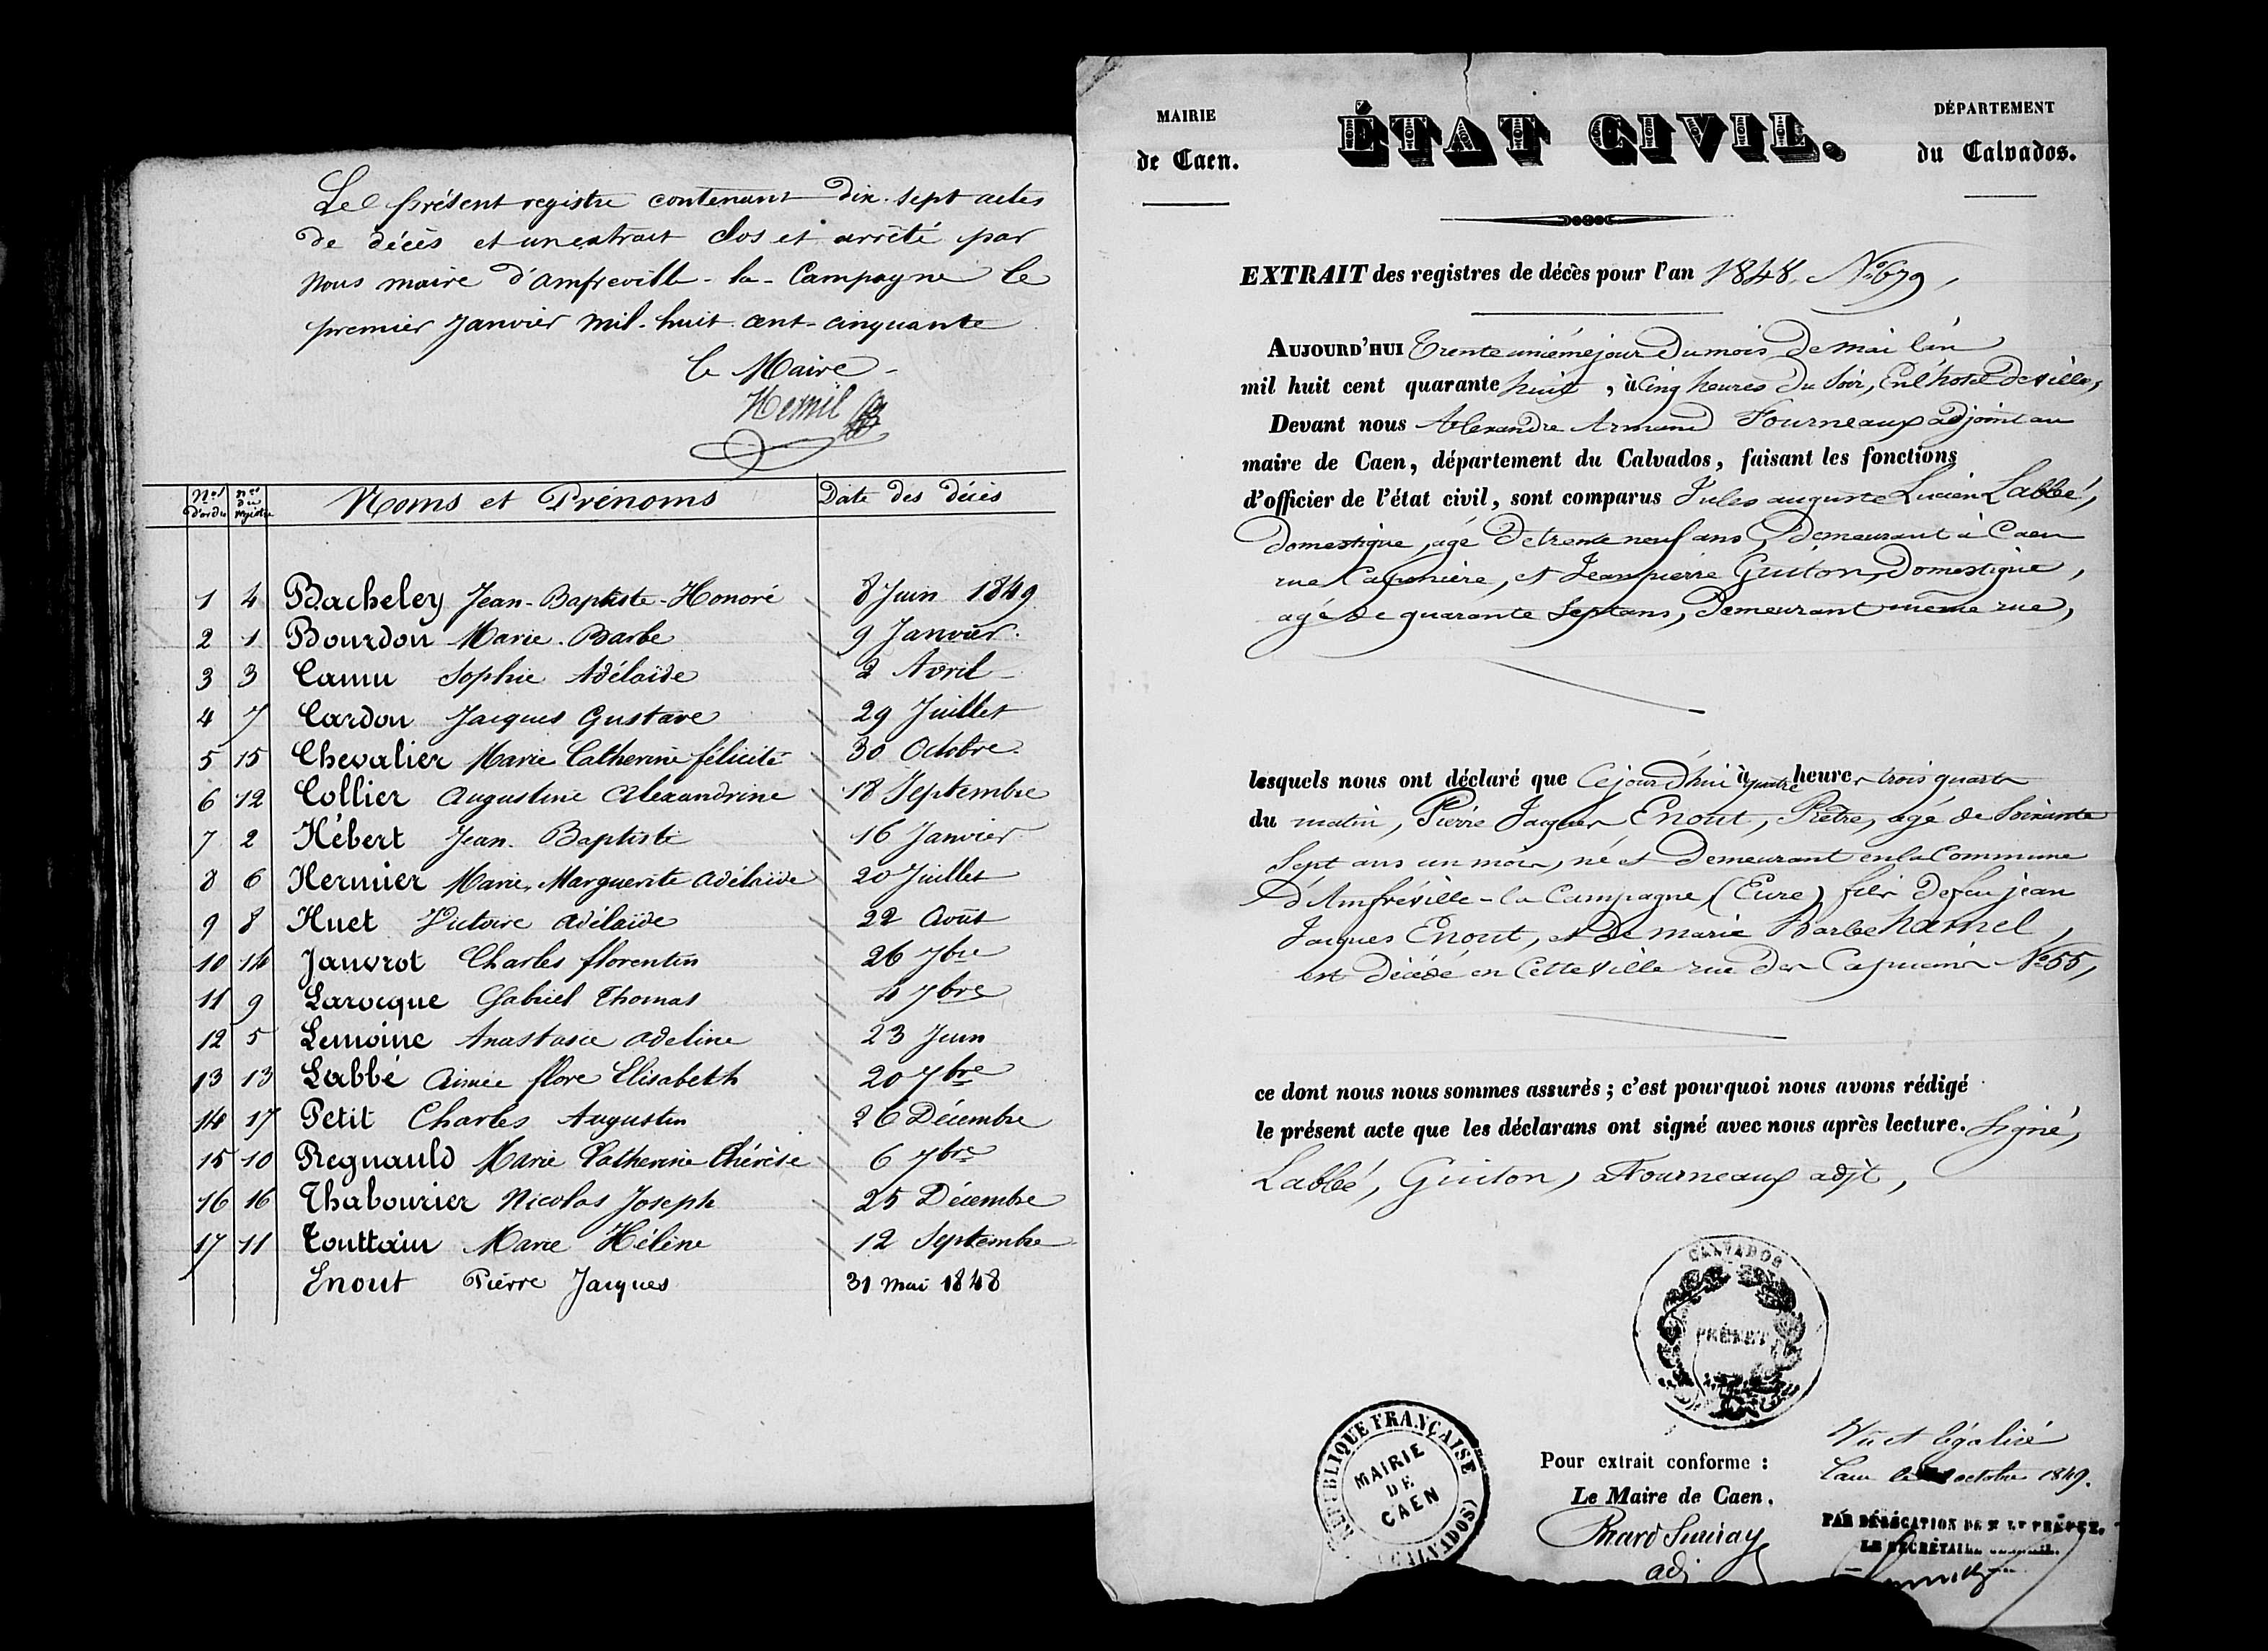 Le présent registre contenant dix-sept actes
de décès et un extrait clos et arrêté par
nous maire d'amfreville-la-Campagne le
premier Janvier mil-huit-cent-cinquante
Le Maire
Nos d'ordre nos du registre Noms et Prénoms Date des décès
1 4 Bacheley Jean-Baptiste-Honoré 8 Juin 1849
2 1 Bourdon Marie-Barbe 9 Janvier.
3 3 Camu Sophie Adélaïde 2 Avril
4 7 Cardon Jacques Gustave 29 Juillet
5 15 Chevalier Marie Catherine félicité 30 Octobre
6 12 Collier Augustine Alexandrine 18 Septembre
7 2 Hébert Jean-Baptiste 16 Janvier
8 6 Hermier Marie Marguerite Adélaïde 20 Juillet
9 8 Huet Victoire Adélaïde 22 Août
10 14 Janvrot Charles florentin 26 7bre
11 9 Larocque Gabriel Thomas 4 7bre
12 5 Lemoine Anastasie Adeline 23 Juin
13 13 Labbé Aimée flore Elisabeth 20 7bre
14 17 Petit Charles Augustin 26 Décembre
15 10 Regnauld Marie Catherine Thérèse 6 7bre
16 16 Thabourier Nicolas Joseph 25 Décembre
17 11 Touttain Marie Hélène 12 Septembre
Enout Pierre Jacques 31 mai 1848
MAIRIE
de Caen.
ÉTAT CIVIL.
DÉPARTEMENT
du Calvados.
EXTRAIT des registres de décès pour l'an 1848. No 679,
AUJOURD'HUI Trente unième jour du mois de mai l'an
mil huit cent quarante huit, à Cinq heures du Soir, En l'hotel de ville,
Devant nous Alexandre Armand Fourneaux adjoint au
maire de Caen, département du Calvados, faisant les fonctions
d'officier de l'état civil, sont comparus Jules auguste Lucien Labbé,
Domestique, agé de trente neuf ans, Demeurant à Caen
rue Caponière, et Jean pierre Guiton, Domestique,
agé de quarante Sept ans, Demeurant même rue,
lesquels nous ont déclaré que Cejourd'hui à quatre heures trois quarts
du matin, Pierre Jacques Enout, Prêtre, agé de Soixante
Sept ans un mois, né et Demeurant en la Commune
D'Amfréville-la Campagne (Eure) fils de feu jean
Jacques Enout, et de marie Barbe hamel,
est Décédé en Cette ville rue des Capucins No 55,
ce dont nous nous sommes assurés ; c'est pourquoi nous avons rédigé
le présent acte que les déclarans ont signé avec nous après lecture. Signé,
Labbé, Guiton, A Fourneaux adjt,
CALVADOS
PRÉFET
RÉPUBLIQUE FRANÇAISE
MAIRIE
DE
CAEN
(CALVADOS)
Pour extrait conforme :
Le Maire de Caen.
adj
Vu et légalisé
Caen le octobre 1849.
PAR DÉLÉGATION DE M. LE PRÉFET.
LE SECRÉTAIRE GÉNÉRAL.